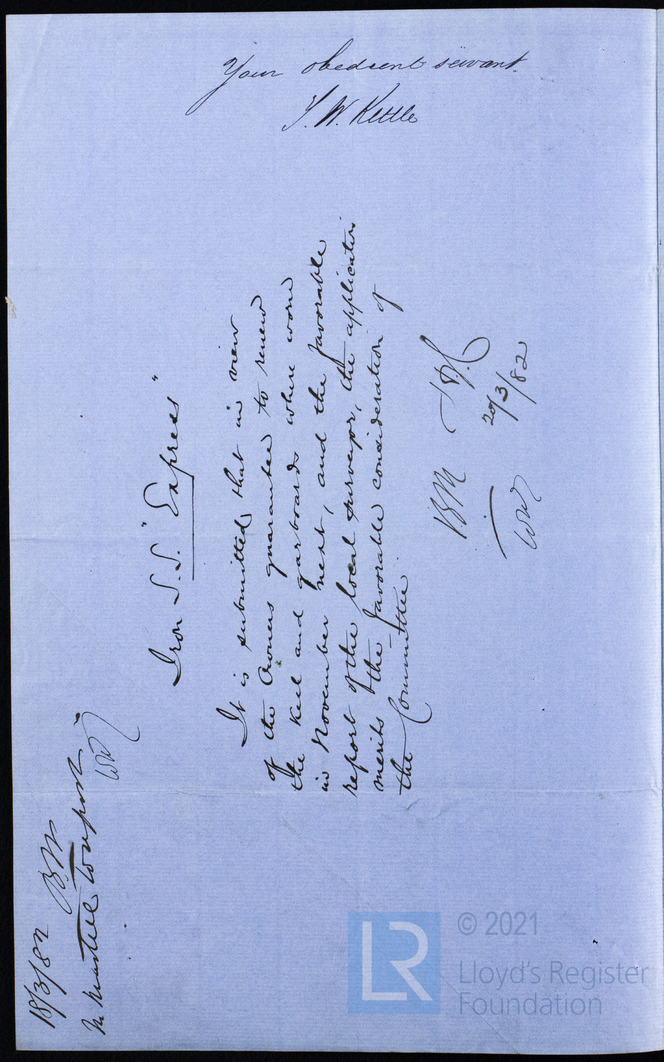 Your obedient servant.
S. W. Kettle
18/3/82 B.M
Mr
Iron S.S. "Express"
It is submitted, that in view
of the Owners guarantee to renew
the keel and garboards where worn
in November next, and the favorable
report of the local surveyor, the application
merits the favorable consideration of
the Committee
BM
20/3/82
LR
© 2021
Lloyd's Register
Foundation